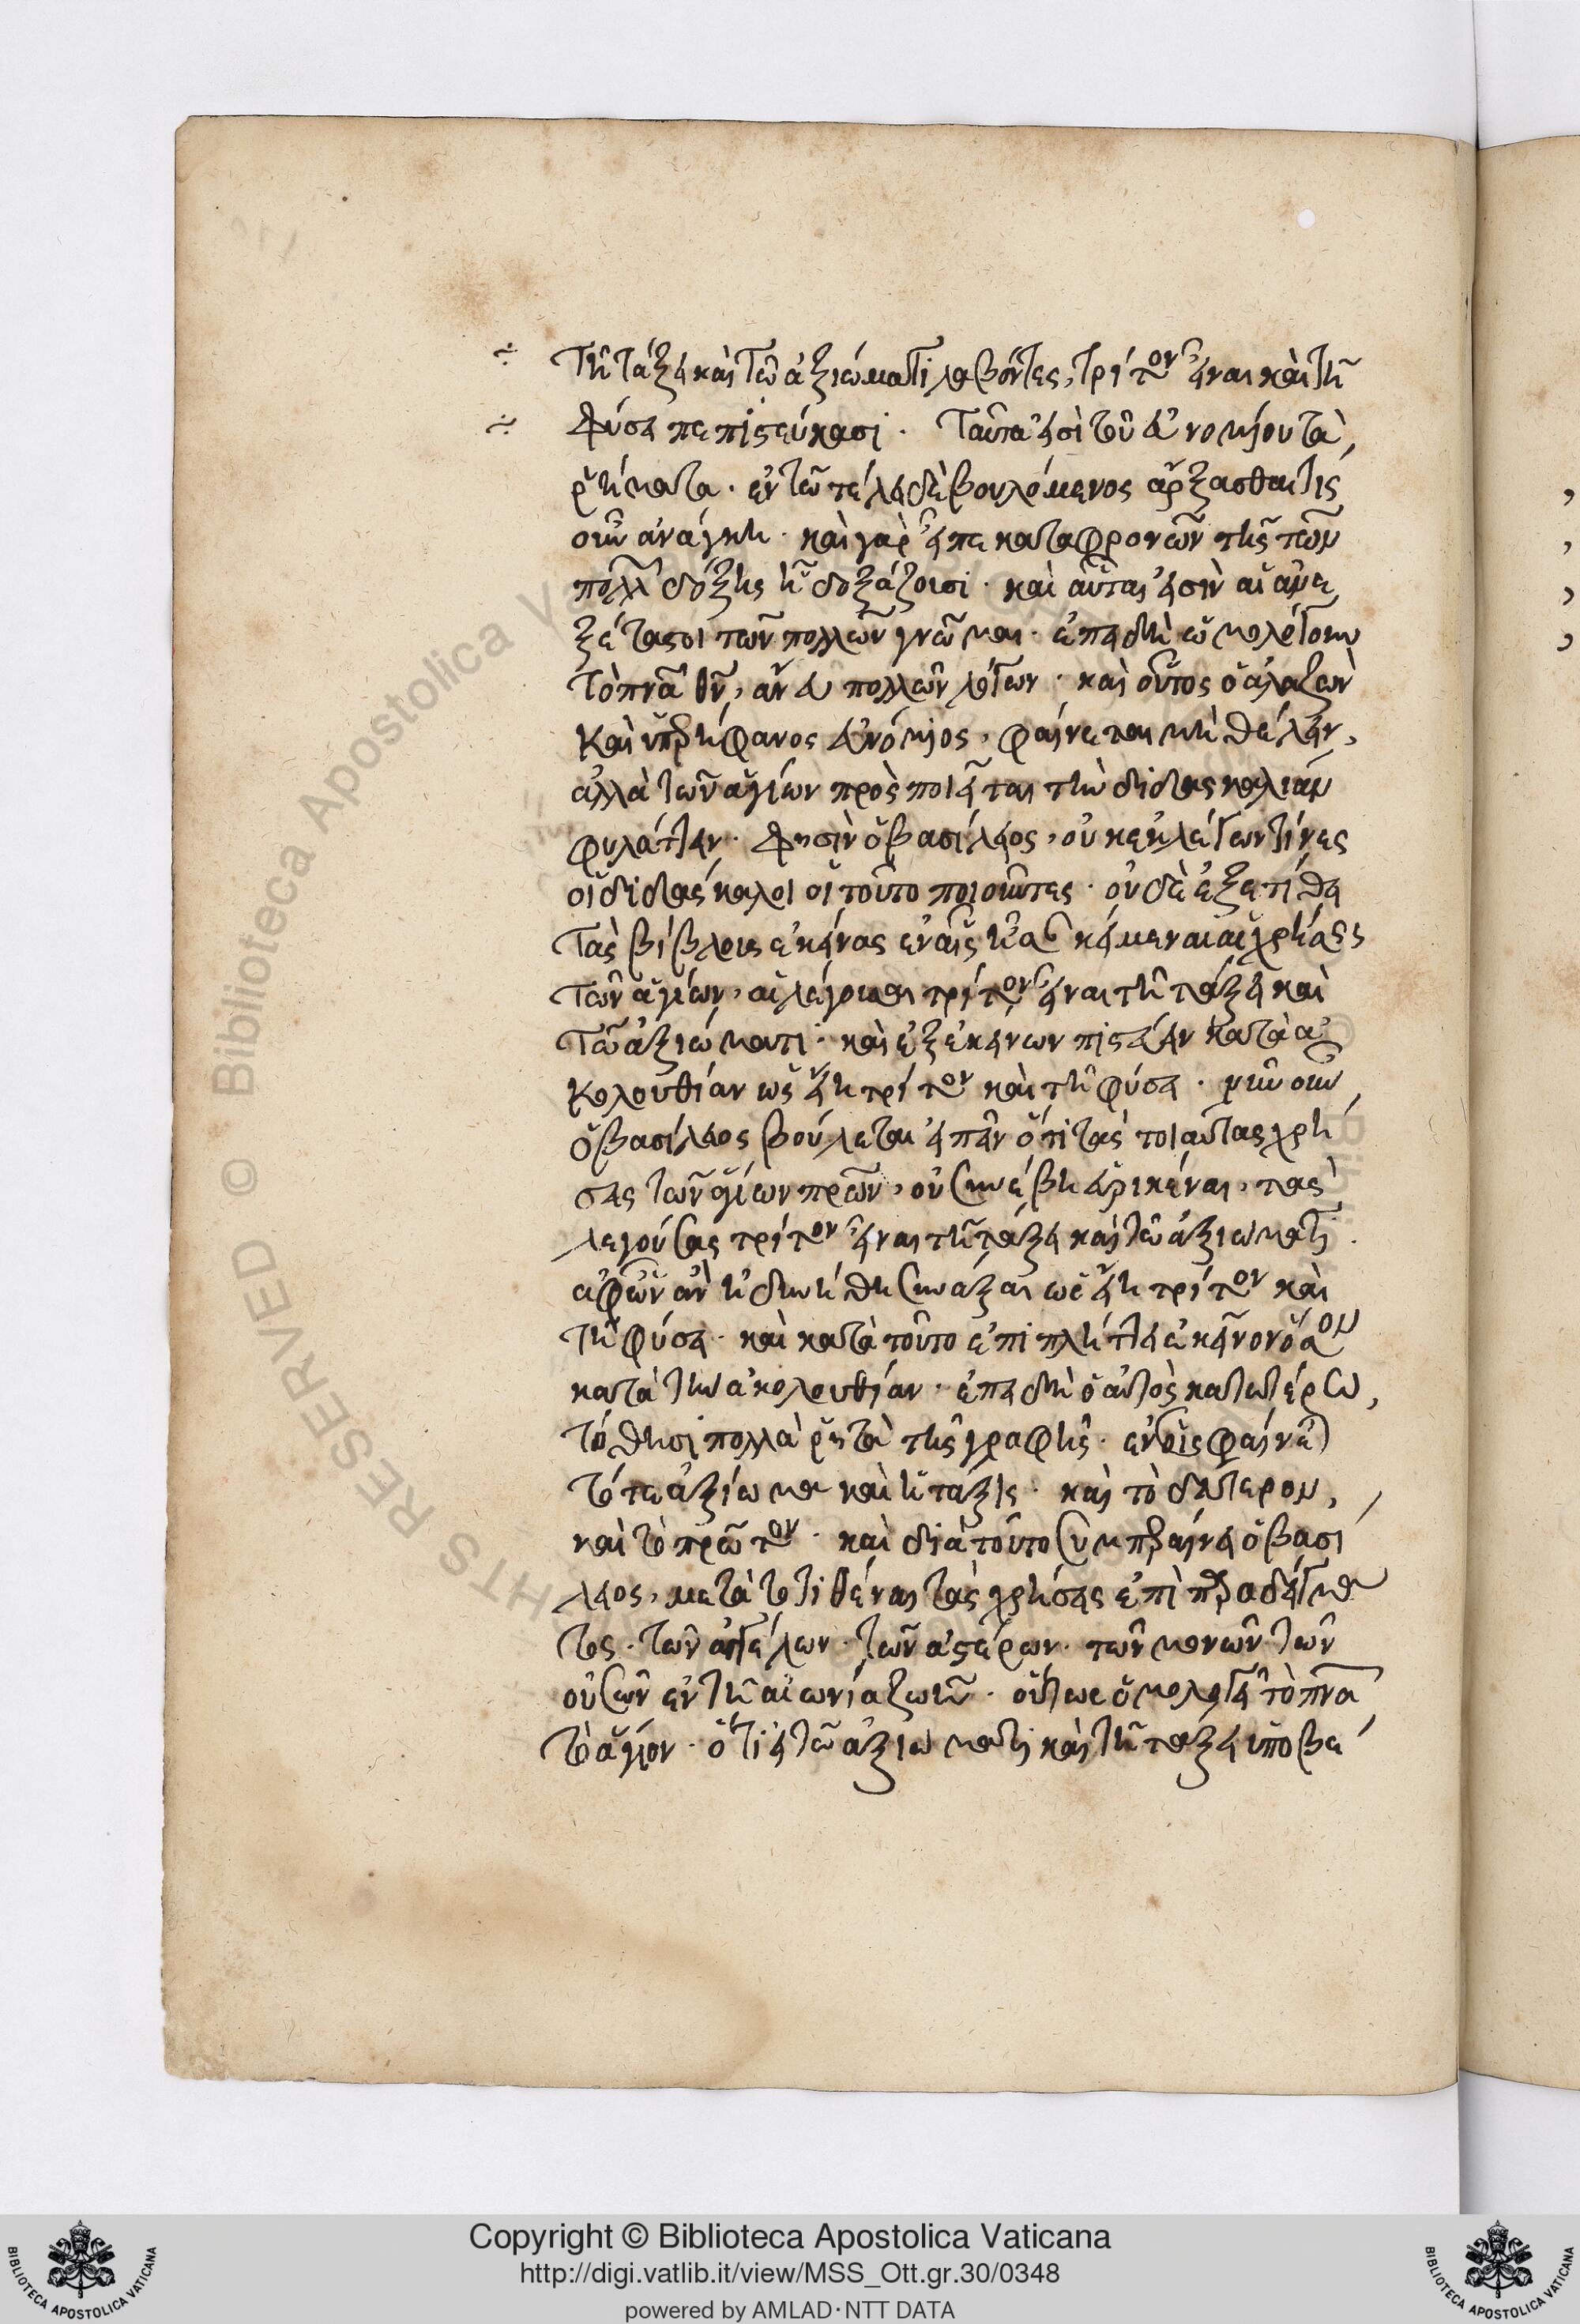 τῆ τάξει καὶ τῶ ἀξιώματι λαβόντες, τρίτον εἶναι καὶ τῆ
φύσει πεπιστεύκασι. ταῦτα εἰσὶ τοῦ εὐνομίου τὰ
ῥήματα. ἐν τῶ τέλει δὲ βουλόμενος ἄρξασθαι τίς
οὖν ἀνάγκη. καὶ γὰρ εἶπε καταφρονεῖν τῆς τῶν
πολλῶν δόξης ἣν δοξάζουσι. καὶ αὗται εἰσὶν αἱ ἀνε
ξέταστοι τῶν πολλῶν γνῶμαι. ἐπειδὴ ὡμολόγουν
τὸ πνα θν, ἄνευ πολλῶν λόγων. καὶ οὗτος ὁ ἀλαζὼν
καὶ ὑπερήφανος εὐνόμιος, φαίνεται μὴ θέλειν,
ἀλλὰ τῶν ἁγίων προσποιεῖται τὴν διδασκαλίαν
φυλάττειν. φησὶν ὁ βασίλειος, οὐκ ἐκλέγων τίνες
οἱ διδάσκαλοι οἱ τοῦτο ποιοῦντες. οὐδὲ ἐξετίθει
τὰς βίβλους ἐκείνας ἐν αἷς ἦσαν κείμεναι αἱ χρήσεις
τῶν ἁγίων, αἳ λέγουσαι τρίτον εἶναι τῆ τάξει καὶ
τῶ ἀξιώματι. καὶ ἐξ ἐκείνων πιστεύειν κατὰ ἀ
κολουθίαν ὡς εἴη τρίτον καὶ τῆ φύσει. νῦν οὖν
ὁ βασίλειος βούλεται εἰπεῖν ὅτι τὰς τοιαύτας χρή
σεις τῶν ἁγίων πρων, οὐ συνέβη εὑρικέναι, τὰς
λεγούσας τρίτον εἶναι τῆ τάξει καὶ τῶ ἀξιώματι.
ἀφ ὧν ἂν ἠδυνήθη συνάξαι ὡς εἴη τρίτον καὶ
τῆ φύσει. καὶ κατὰ τοῦτο ἐπιπλήττει ἐκεῖνον
κατὰ τὴν ἀκολουθίαν. ἐπειδὴ ὁ αὐτὸς κατωτέρω,
τίθησι πολλὰ ῥητὰ τῆς γραφῆς. ἐν οἷς φαίνεται
τό τε ἀξίωμα καὶ ἡ τάξις. καὶ τὸ δεύτερον,
καὶ τὸ πρῶτον. καὶ διὰ τοῦτο συμπεραίνει ὁ βασί
λειος, μετὰ τὸ τιθέναι τὰς χρήσεις ἐπὶ παραδείγμα
τος. τῶν ἀγγέλων. τῶν ἀστέρων. τῶν μονῶν τῶν
οὐσῶν ἐν τῆ αἰωνία ζωῆ. οὕτως ὁμολογεῖ τὸ πνα
τὸ ἅγιον. ὅτι εἰ τῶ ἀξιώματι καὶ τῆ τάξει ὑποβέ
Copyright © Biblioteca Apostolica Vaticana
http://digi.vatlib.it/view/MSS_Ott.gr.30/0348
powered by AMLAD·NTT DATA